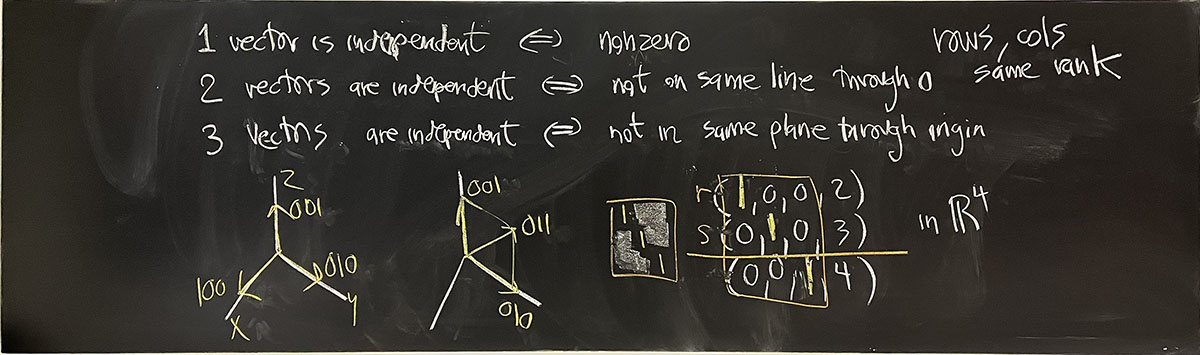 1 vector is independent ⇔ nonzero
rows, cols
same rank
2 vectors are independent ⇔ not on same line through 0
3 vectors are independent ⇔ not in same plane through origin
Z
001
100
010
X
Y
001
011
010
1
1
1
r(1,0,0,2)
s(0,1,0,3)
(0,0,1,4)
in ℝ⁴